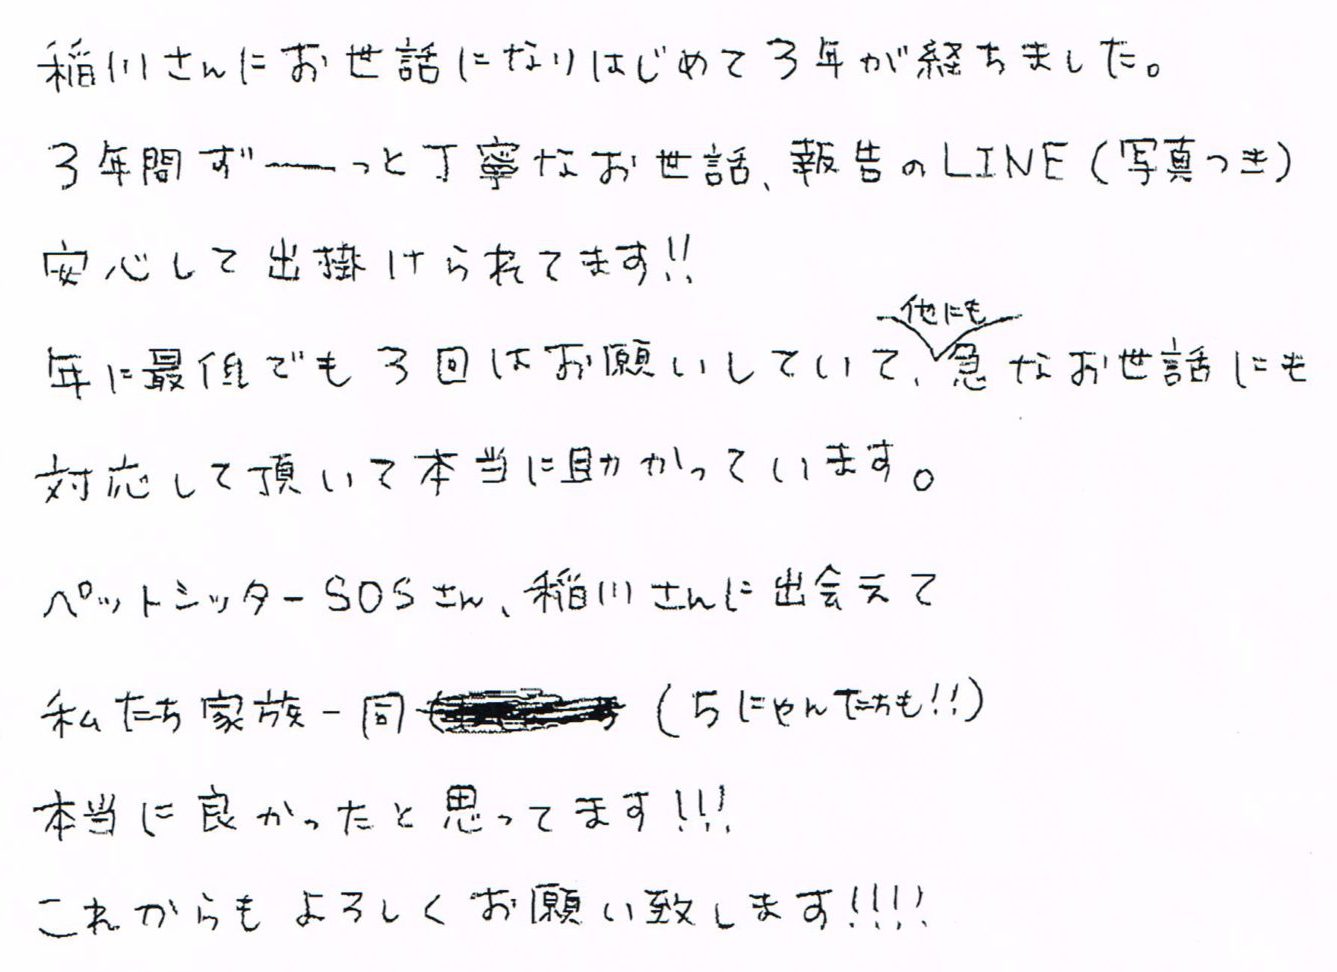 稲川さんにお世話になりはじめて3年が経ちました。
3年間ずーっと丁寧なお世話、報告のLINE(写真つき)
安心して出掛けられてます!!
年に最低でも3回はお願いしていて、他にも急なお世話にも
対応して頂いて本当に助かっています。
ペットシッターSOSさん、稲川さんに出会えて
私たち家族一同(5にゃんたちも!!)
本当に良かったと思ってます!!!
これからもよろしくお願い致します!!!!